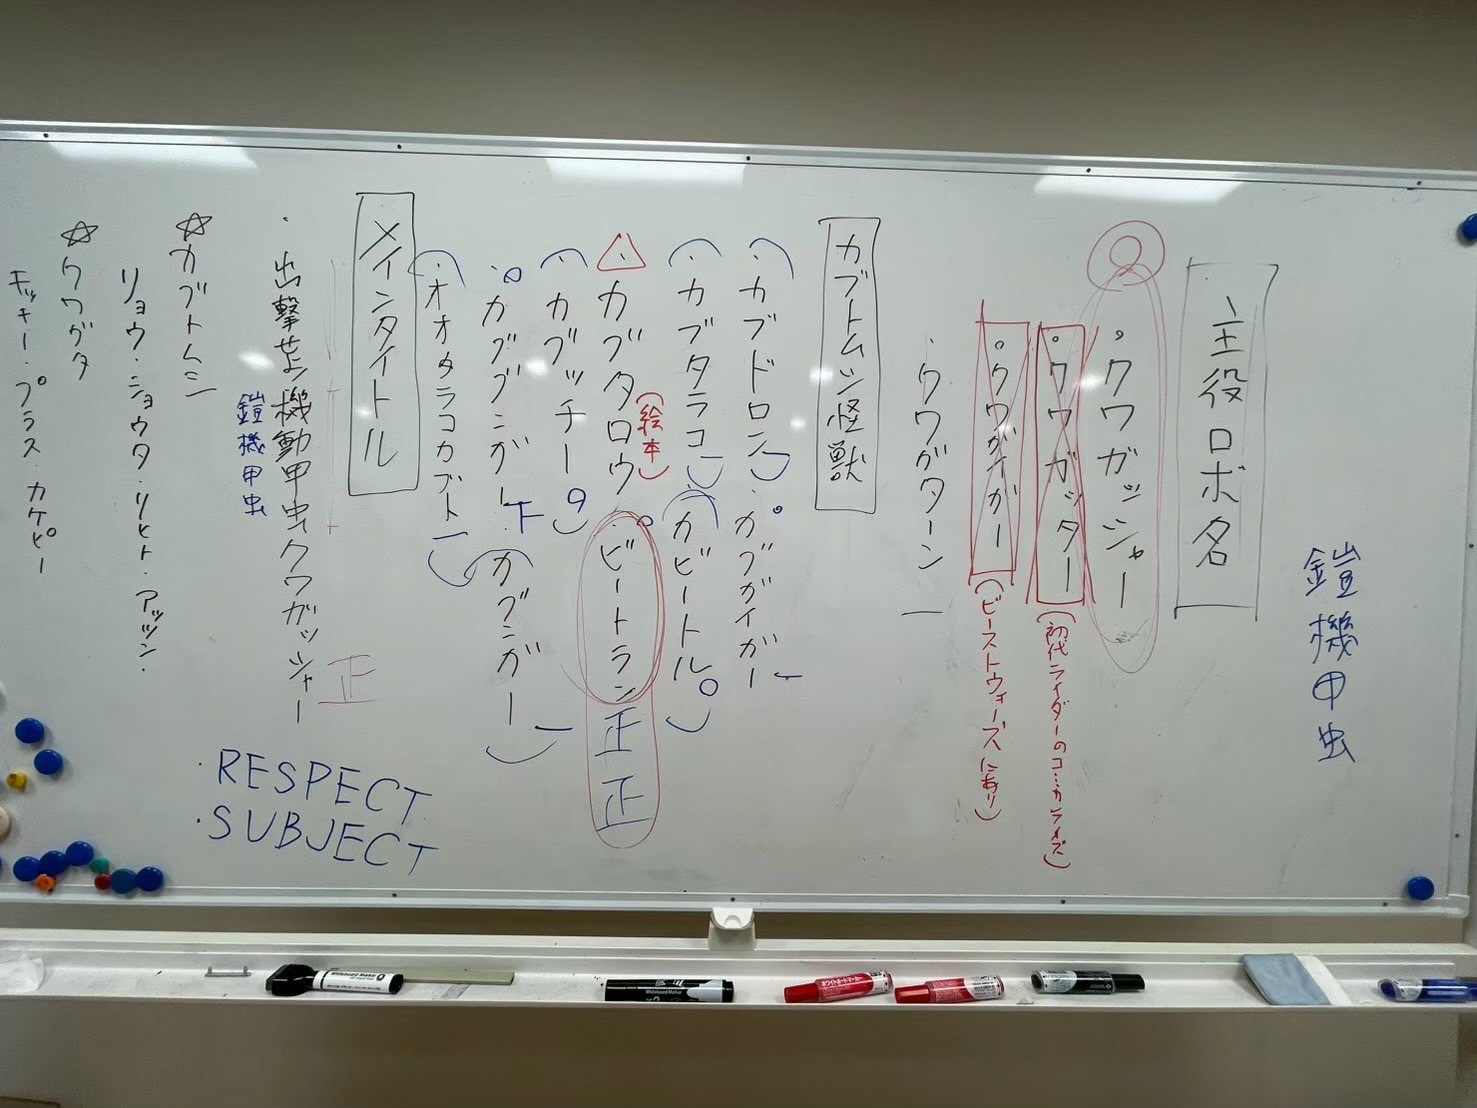 鎧機甲虫
主役ロボ名
。クワガッシャー
。クワガッター
(初代ライダーのコミカライズ)
。クワガイガー
(ビーストウォーズにあり)
・クワガターン
カブトムシ怪獣
・カブドロン
・カブガイガー
・カブタラコ
・カビートル
・カブタロウ
(絵本)
・ビートラン
正正
・カブッチー
・カブブンガー
下
・カブンガー
・オオタラコカブト
メインタイトル
・出撃
機動甲虫クワガッシャー
正
鎧機甲虫
☆カブトムシ
リョウ・ショウタ・リヒト・アッツン・
☆クワガタ
キッキー・プラス・カケピー
・RESPECT
・SUBJECT
ホワイトボードマーカー
Whiteboard Marker